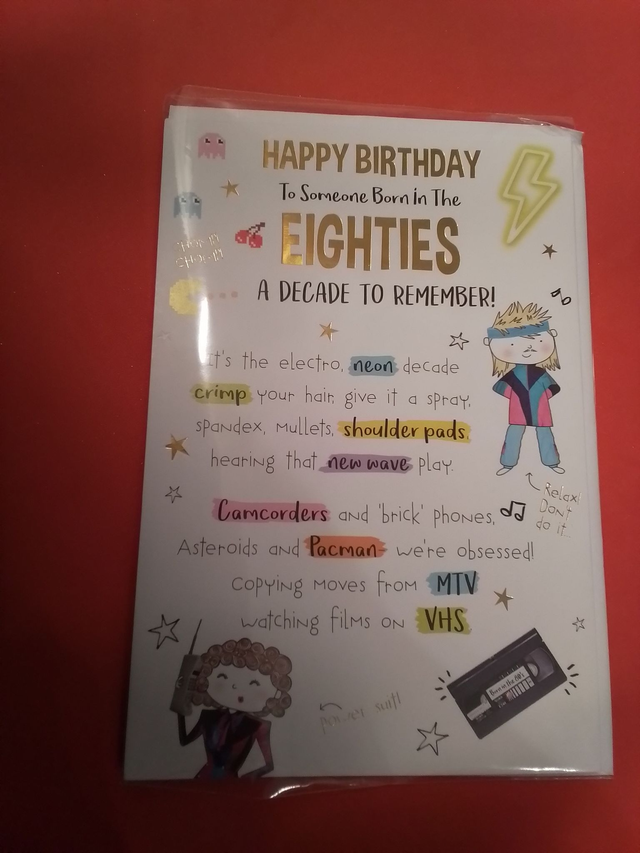 HAPPY BIRTHDAY
To Someone Born In The
EIGHTIES
"CHOMP
CHOMP"
A DECADE TO REMEMBER!
It's the electro, neon decade
crimp your hair, give it a spray,
spandex, mullets, shoulder pads,
hearing that new wave play.
Relax!
Don't
do it...
Camcorders and 'brick' phones,
Asteroids and Pacman- we're obsessed!
Copying moves from MTV
watching films on VHS.
Born in the 80's
power suit!